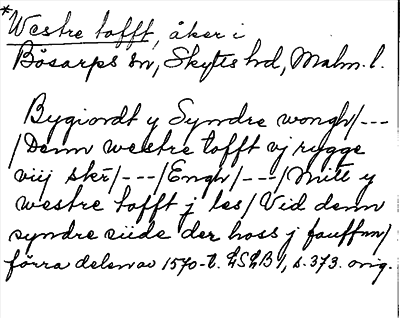 *Westre tofft, åker i
Bösarps sn, Skytts hd, Malm. l.
Bygiordt y Syndre wongh/---
/Denn westre tofft vj rygge
viij skr̄/---/Engh/---/Mitt y
westre tofft j les/Vid denn
syndre siide der hoss j fauffnn/
förra delen av 1570-t. LSLB 1, s. 373. orig.